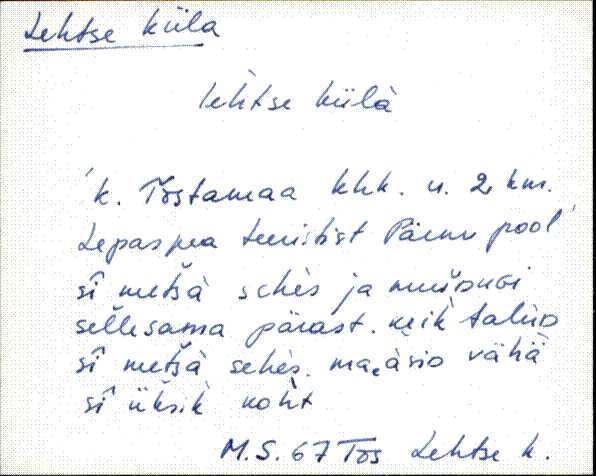 Lehtse küla
lèh̀tse külà
k. Tõstamaa khk. u. 2 km.
Lepaspea teeristist Pärnu pool
sî metsà sehès ja
sellesama pärast. keik talud
sî metsà sehès. vähä
sî üksìk koht
M.S. 67 Tõs Lehtse k.